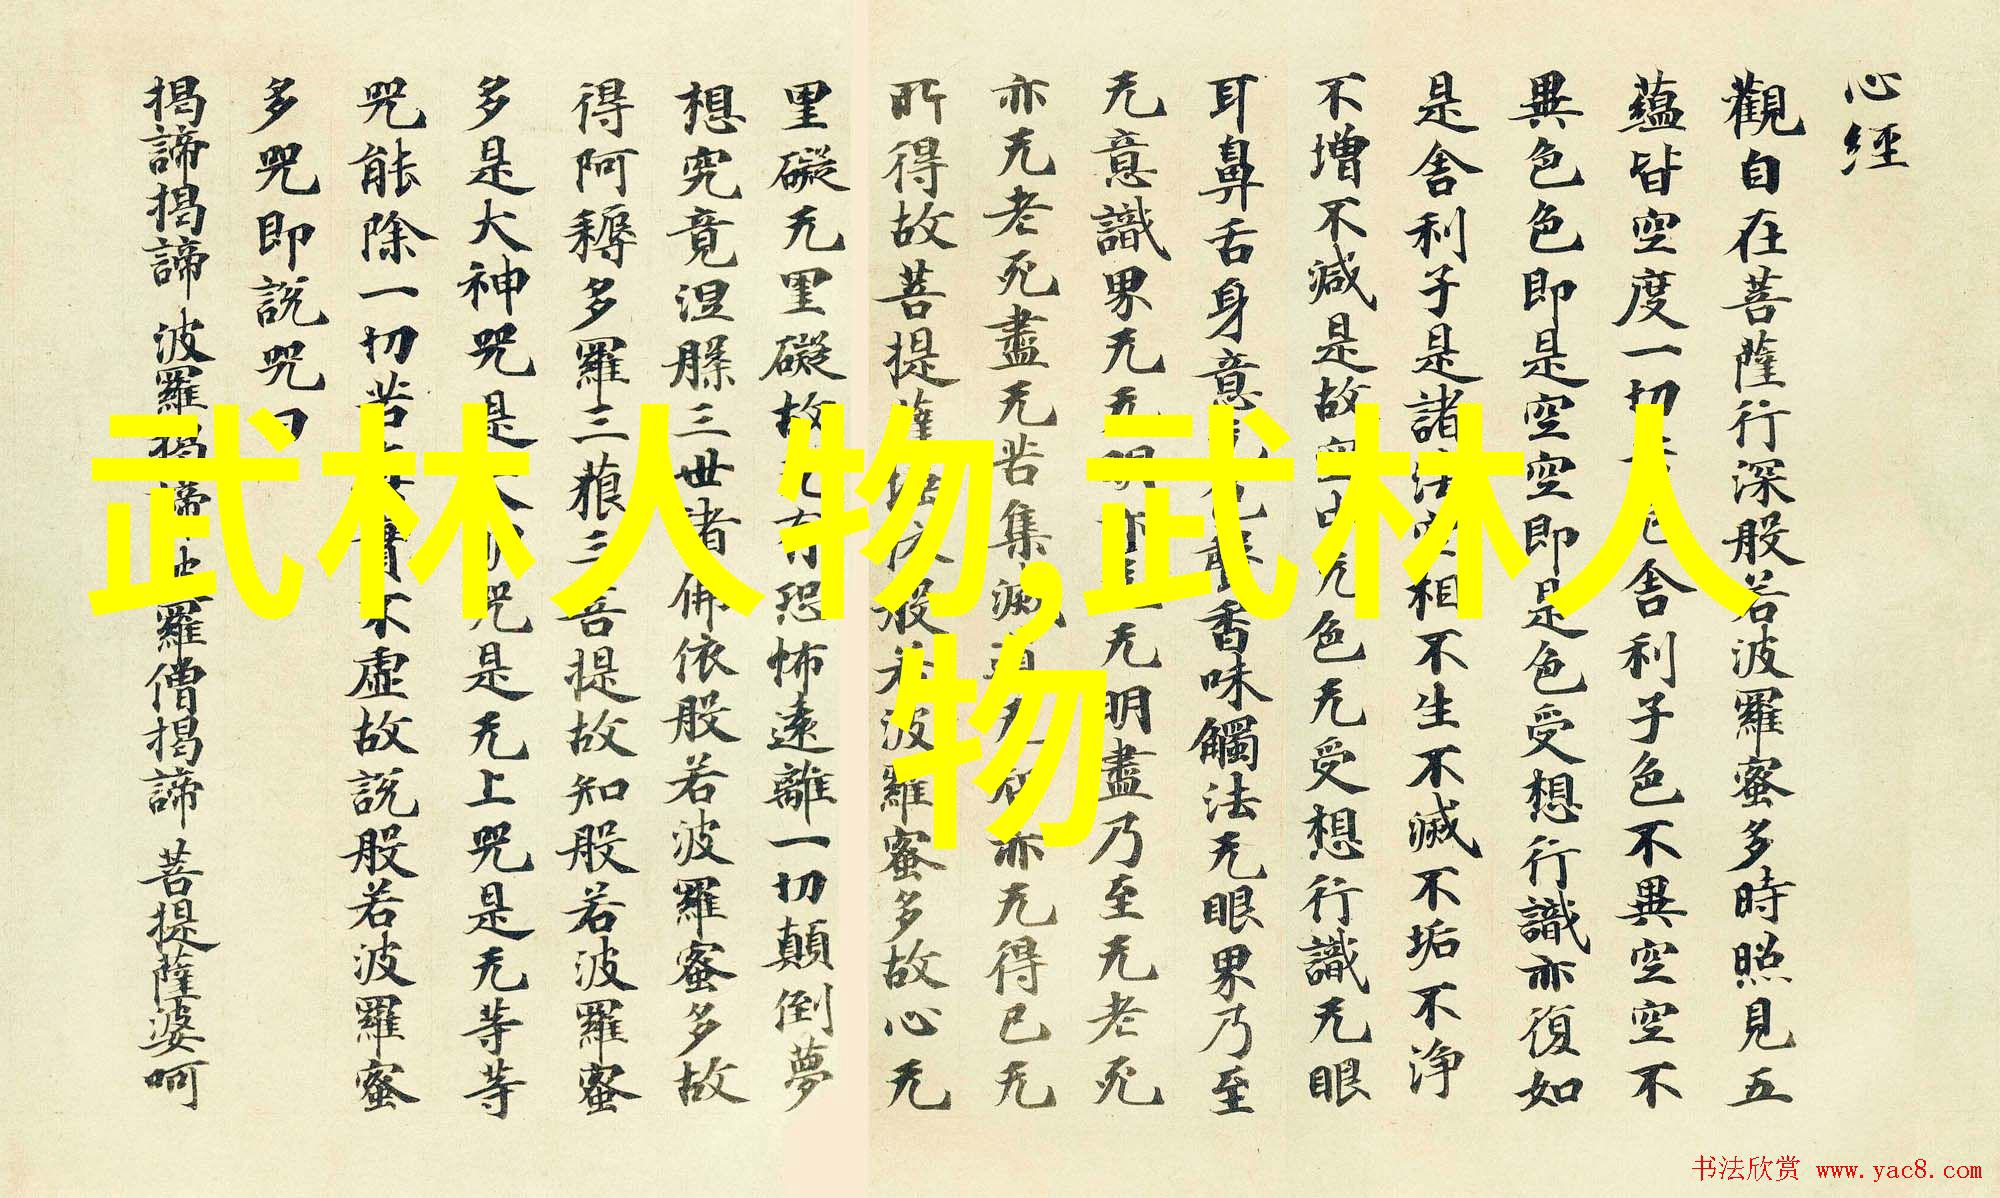 心經
觀自在菩薩行深般若波羅蜜多時照見五
蘊皆空度一切厄舍利子色不異空空不
異色色即是空空即是色受想行識亦復如
是舍利子是諸法空相不生不滅不垢不浄
不增不減是故空中无色无受想行識无眼
耳鼻舌身意香味觸法无眼界乃至
无意識界无无明亦无无明盡乃至无老死
亦无老死盡无苦集滅道亦无得已无
所得故菩提薩依般若波羅蜜多故心无
罣礙无罣礙故无有恐怖遠離一切顛倒夢
想究竟涅槃三世諸佛依般若波羅蜜多故
得阿耨多羅三藐三菩提故知般若波羅蜜
多是大神咒是大咒是无上咒是无等等
咒能除一切苦實不虛故說般若波羅蜜
多咒即說咒曰
揭諦揭諦 波羅揭諦 波羅僧揭諦 菩提薩婆呵
武林人物,武林人
物
书法欣赏 www.yac8.com